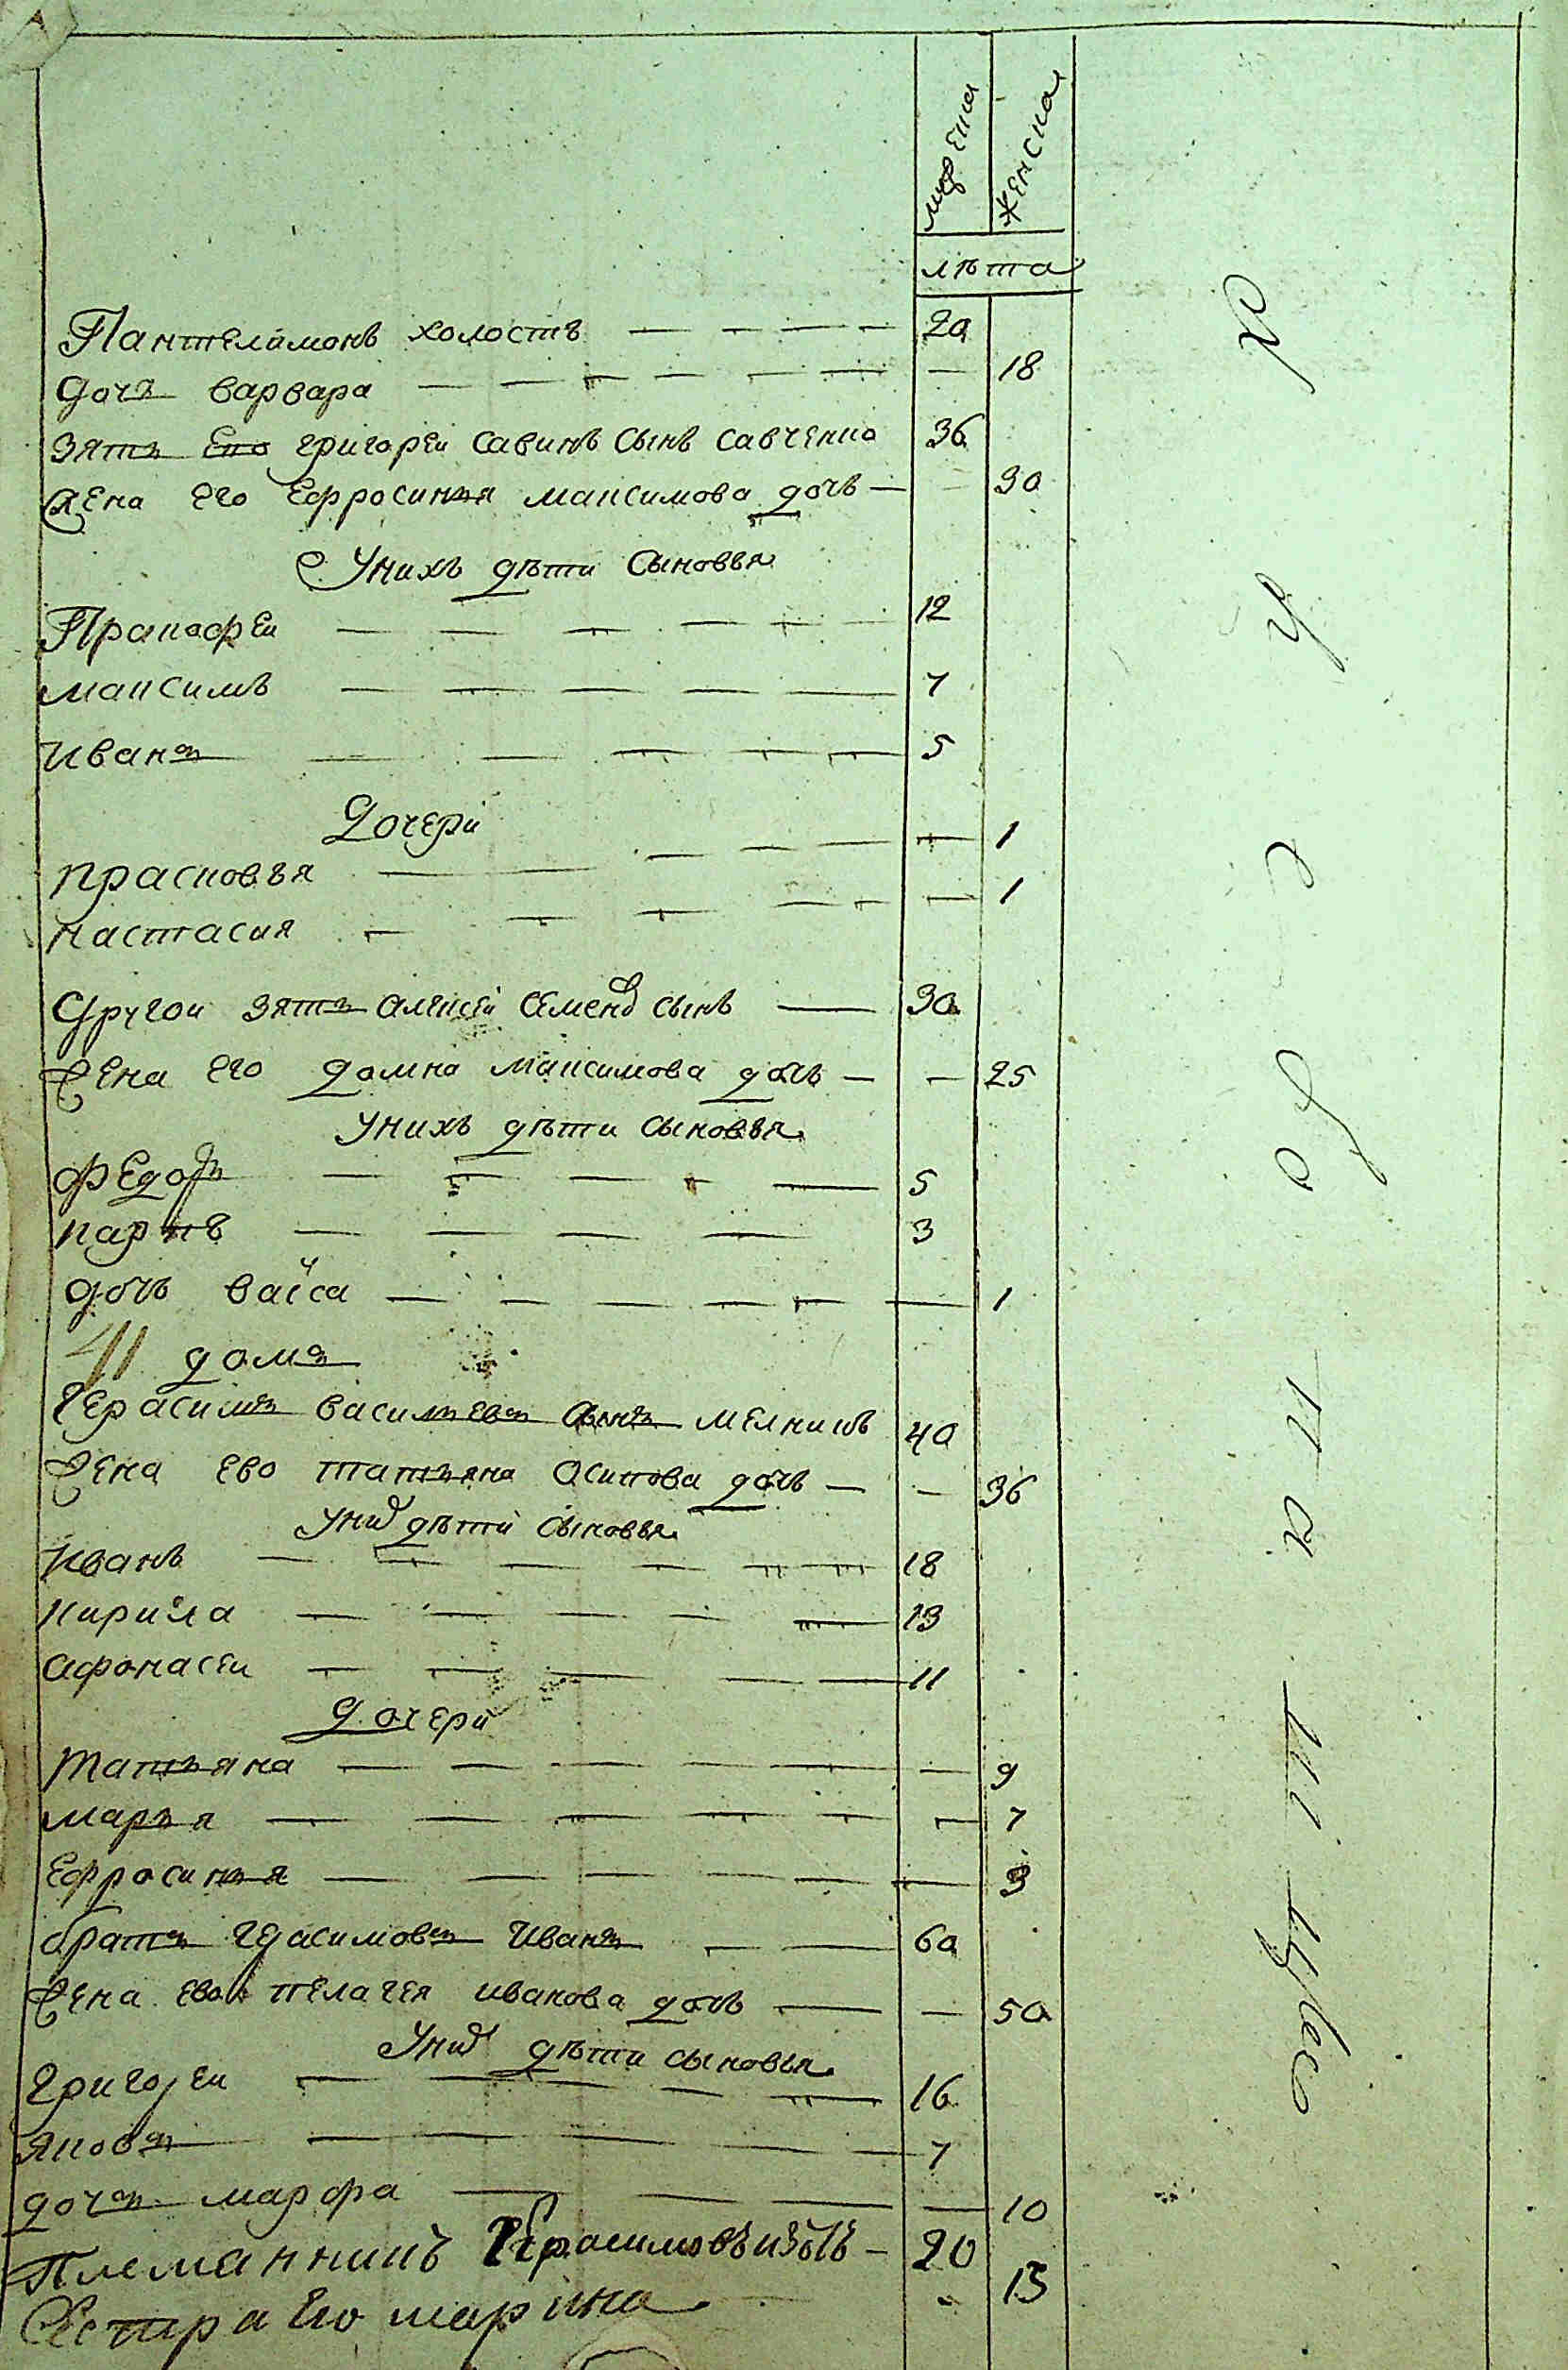 мужеска
женска
лѣта
Пантелимонъ холостъ — — — — 20
дочь варвара — — — — — — — 18
зять Его григореи савинъ сынъ савченко 36
жена его Ефросинья максимова дочъ — 30
Унихъ дѣти сыновья
Пракофеи — — — — — 12
максимъ — — — — — 7
иванъ — — — — — 5
Дочери
прасковья — — — — — — 1
настасия — — — — — — 1
Другои зять алексеи семенов сынъ — 30
жена его домна максимова дочъ — — 25
унихъ дѣти сыновья
федоръ — — — — — 5
карпъ — — — — 3
дочъ васса — — — — — — 1
41 домъ
Герасимъ васильевъ сынъ мелникъ 40
жена ево татьяна осипова дочъ — — 36
уних дѣти сыновья
иванъ — — — — — — 18
кирила — — — — — 13
афонасеи — — — — — 11
Дочери
татьяна — — — — — — 9
марья — — — — — — 7
Ефросинья — — — — — — 3
братъ герасимовъ иванъ — — 60
жена ево пелагея иванова дочъ — — 50
Уних дѣти сыновья
григореи — — — — — 16
яковъ — — — — — 7
дочъ марфа — — — — 10
Племанникъ Герасимовъ изотъ — 20
Сестра Его марина 13